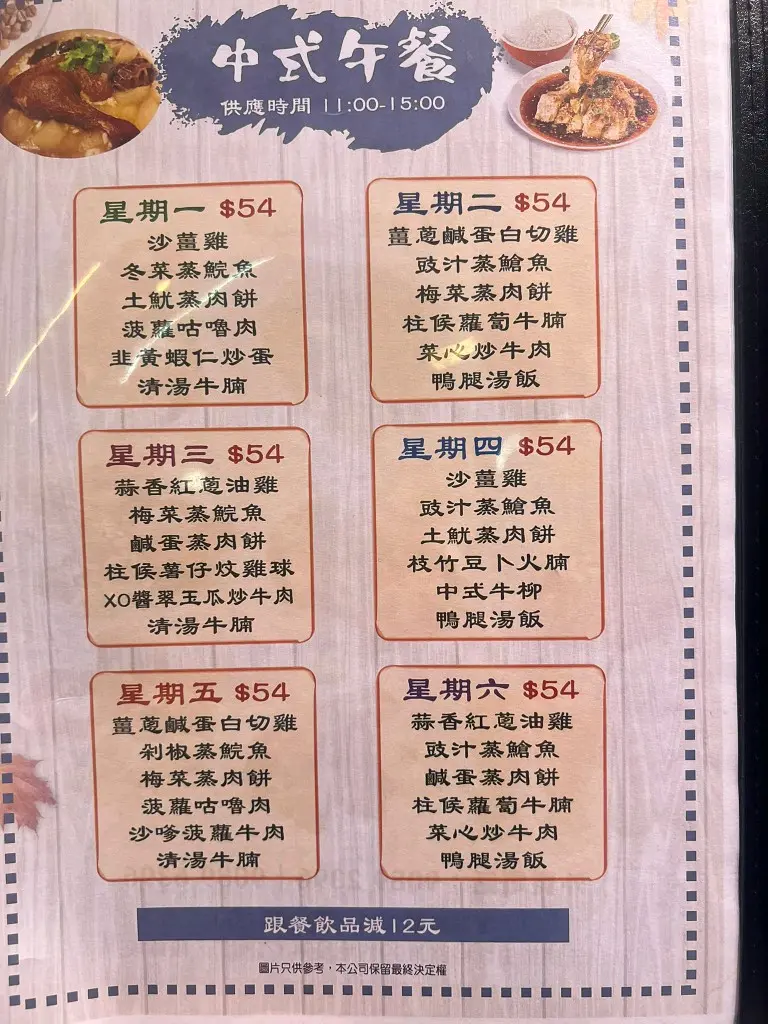 中式午餐
供應時間 11:00-15:00
星期一 $54
沙薑雞
冬菜蒸鯇魚
土魷蒸肉餅
菠蘿咕嚕肉
韭黃蝦仁炒蛋
清湯牛腩
星期二 $54
薑蔥鹹蛋白切雞
豉汁蒸鯧魚
梅菜蒸肉餅
柱候蘿蔔牛腩
菜心炒牛肉
鴨腿湯飯
星期三 $54
蒜香紅蔥油雞
梅菜蒸鯇魚
鹹蛋蒸肉餅
柱侯薯仔炆雞球
XO醬翠玉瓜炒牛肉
清湯牛腩
星期四 $54
沙薑雞
豉汁蒸鯧魚
土魷蒸肉餅
枝竹豆卜火腩
中式牛柳
鴨腿湯飯
星期五 $54
薑蔥鹹蛋白切雞
剁椒蒸鯇魚
梅菜蒸肉餅
菠蘿咕嚕肉
沙嗲菠蘿牛肉
清湯牛腩
星期六 $54
蒜香紅蔥油雞
豉汁蒸鯧魚
鹹蛋蒸肉餅
柱候蘿蔔牛腩
菜心炒牛肉
鴨腿湯飯
跟餐飲品減12元
圖片只供參考，本公司保留最終決定權